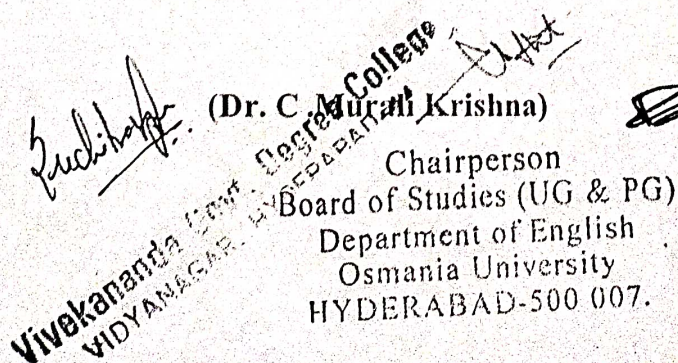 (Dr. C. Murali Krishna)
Chairperson
Board of Studies (UG & PG)
Department of English
Osmania University
HYDERABAD-500 007.
Vivekananda Govt. Degree College
VIDYANAGAR, HYDERABAD